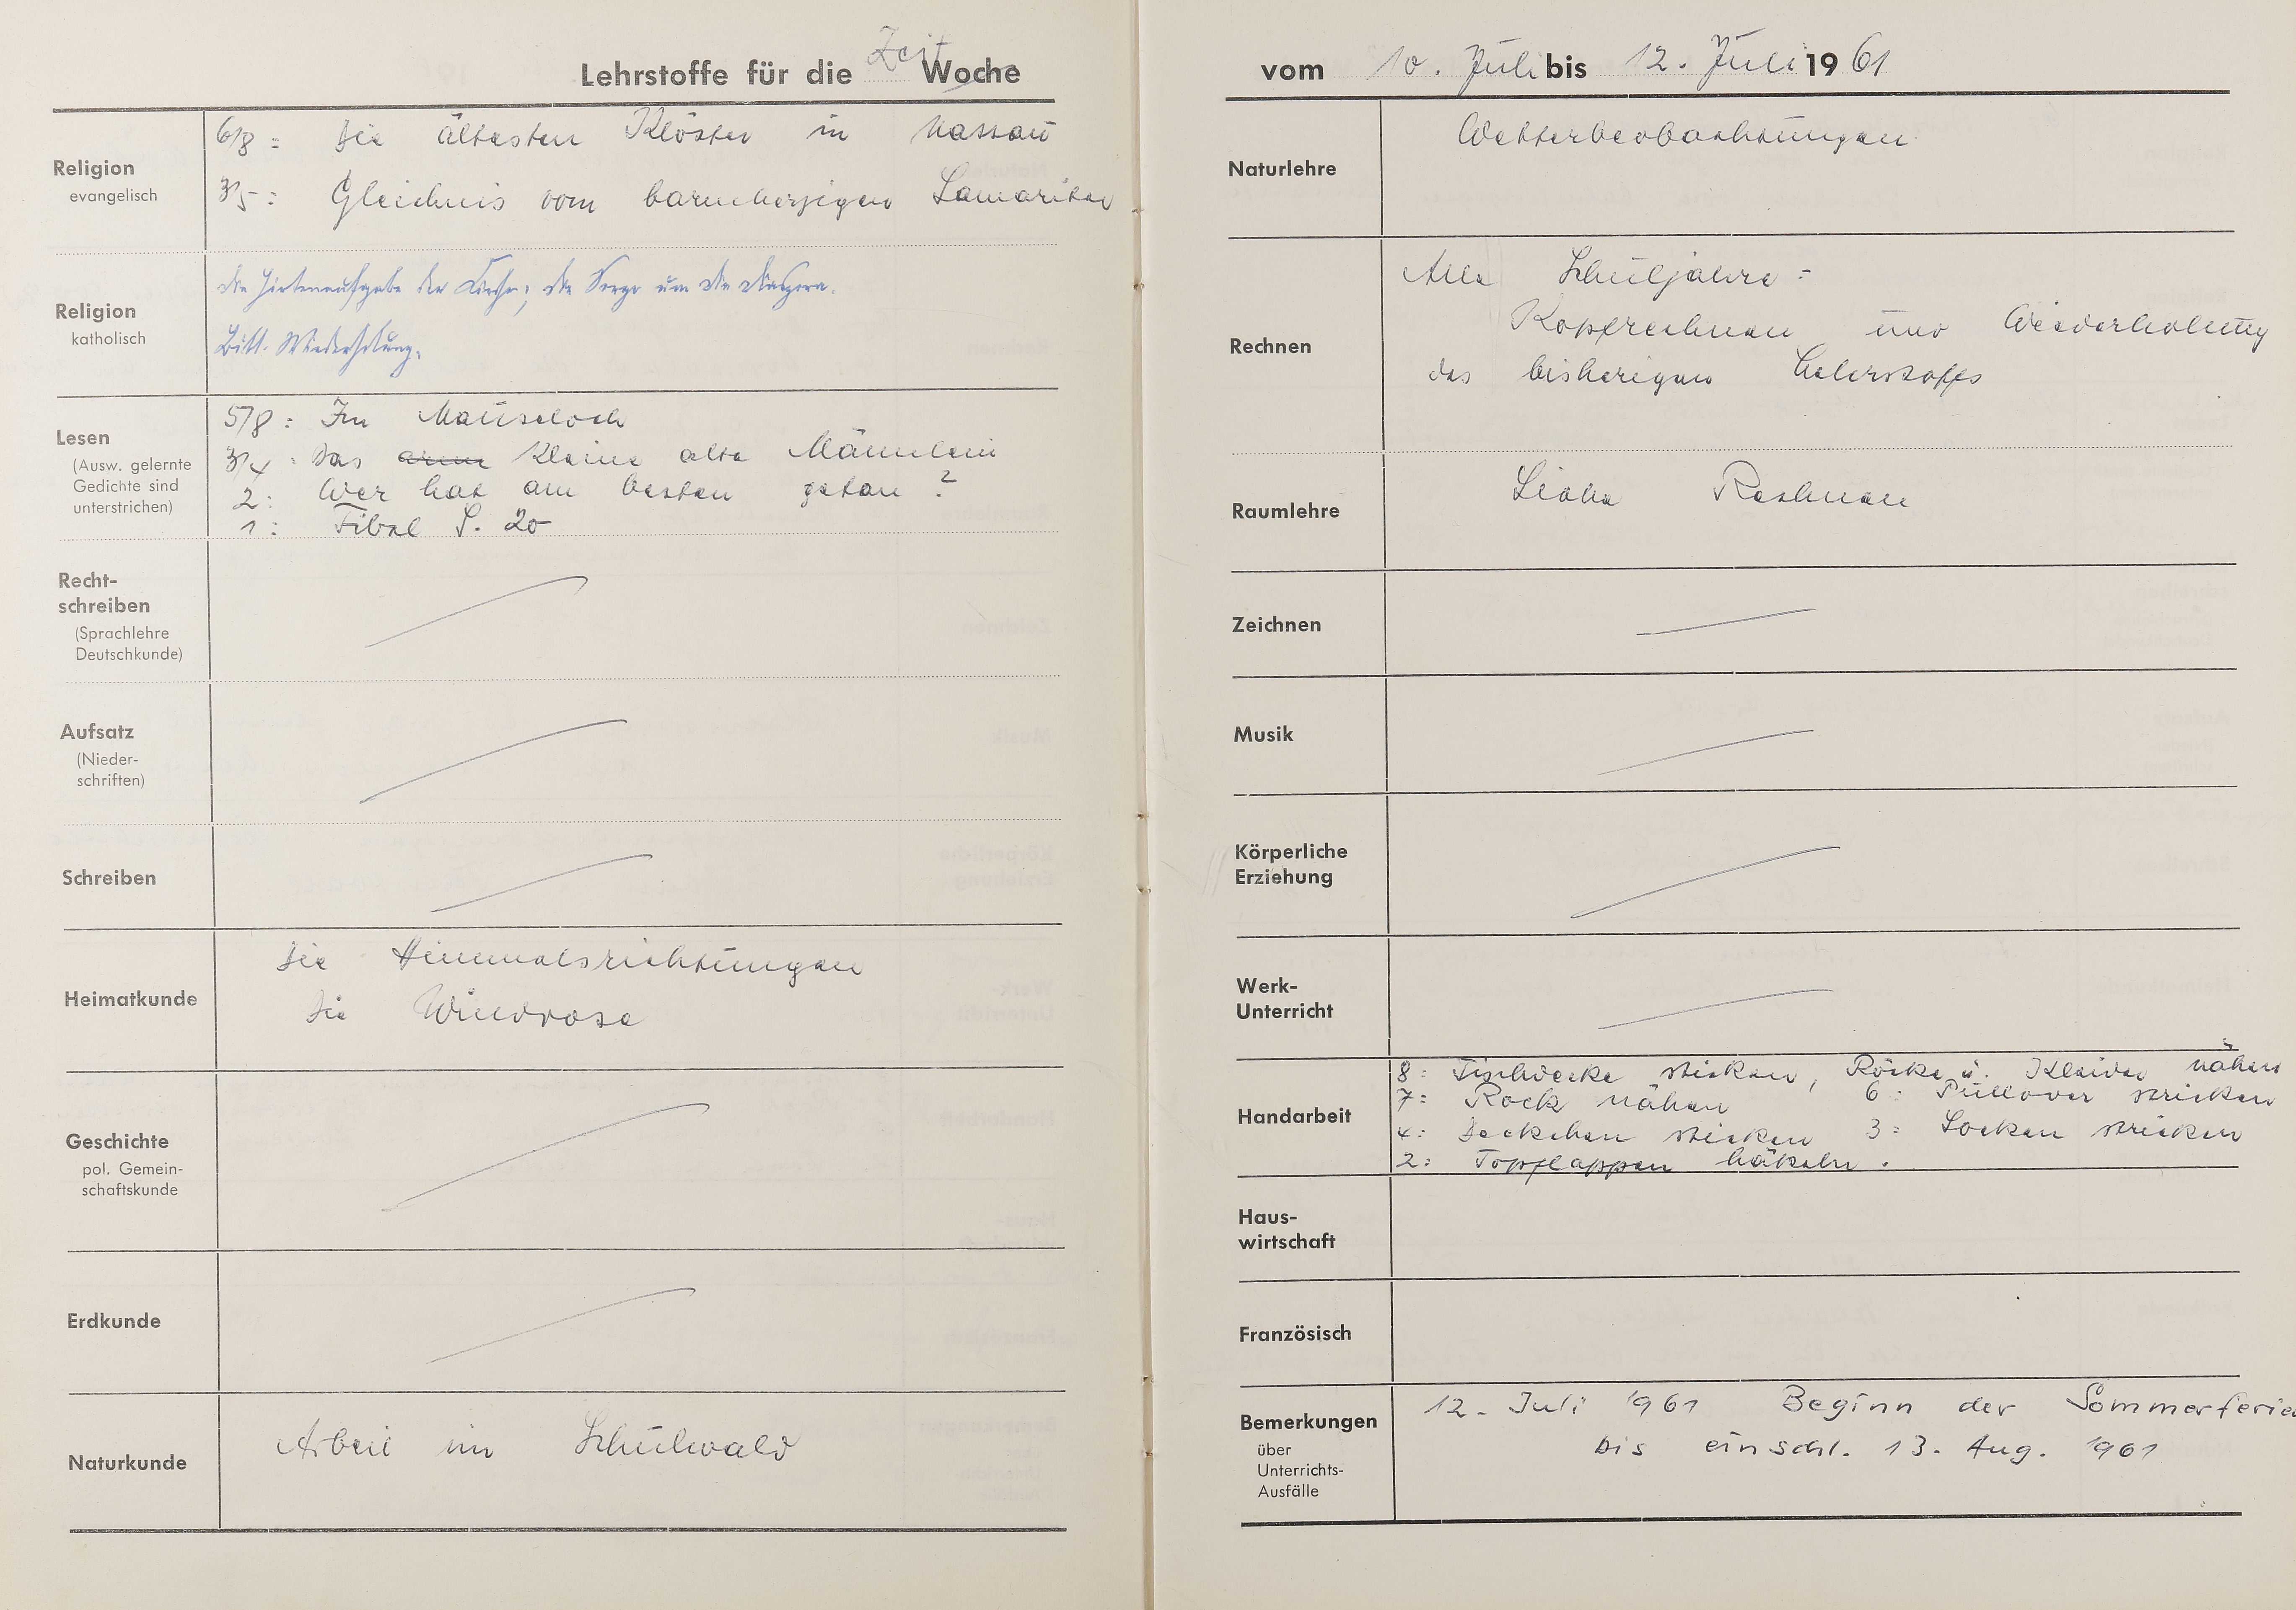 Lehrstoffe für die Zeit Woche
Religion
evangelisch
6/8: Die ältesten Klöster in Nassau
3/5: Gleichnis vom barmherzigen Samariter
Religion
katholisch
Die Hirtenaufgabe der Kirche; die Sorge um die Diaspora.
Bibl. Wiederholung.
Lesen
(Ausw. gelernte
Gedichte sind
unterstrichen)
5/8: Im Mauseloch
3/4: Das arme kleine alte Männlein
2: Wer hat am besten getan?
1: Fibel S. 20
Recht-
schreiben
(Sprachlehre
Deutschkunde)
Aufsatz
(Nieder-
schriften)
Schreiben
Heimatkunde
Die Himmelsrichtungen
Die Windrose
Geschichte
pol. Gemein-
schaftskunde
Erdkunde
Naturkunde
Arbeit im Schulwald
vom 10. Juli bis 12. Juli 1961
Naturlehre
Wetterbeobachtungen
Rechnen
Alle Schuljahre:
Kopfrechnen und Wiederholung
des bisherigen Lehrstoffs
Raumlehre
Siehe Rechnen
Zeichnen
Musik
Körperliche
Erziehung
Werk-
Unterricht
Handarbeit
8: Tischdecke sticken, Röcke u. Kleider nähen
7: Rock nähen 6: Pullover stricken
4: Deckchen sticken 3: Socken stricken
2: Topflappen häkeln.
Haus-
wirtschaft
Französisch
Bemerkungen
über
Unterrichts-
Ausfälle
12. Juli 1961 Beginn der Sommerferien
bis einschl. 13. Aug. 1961